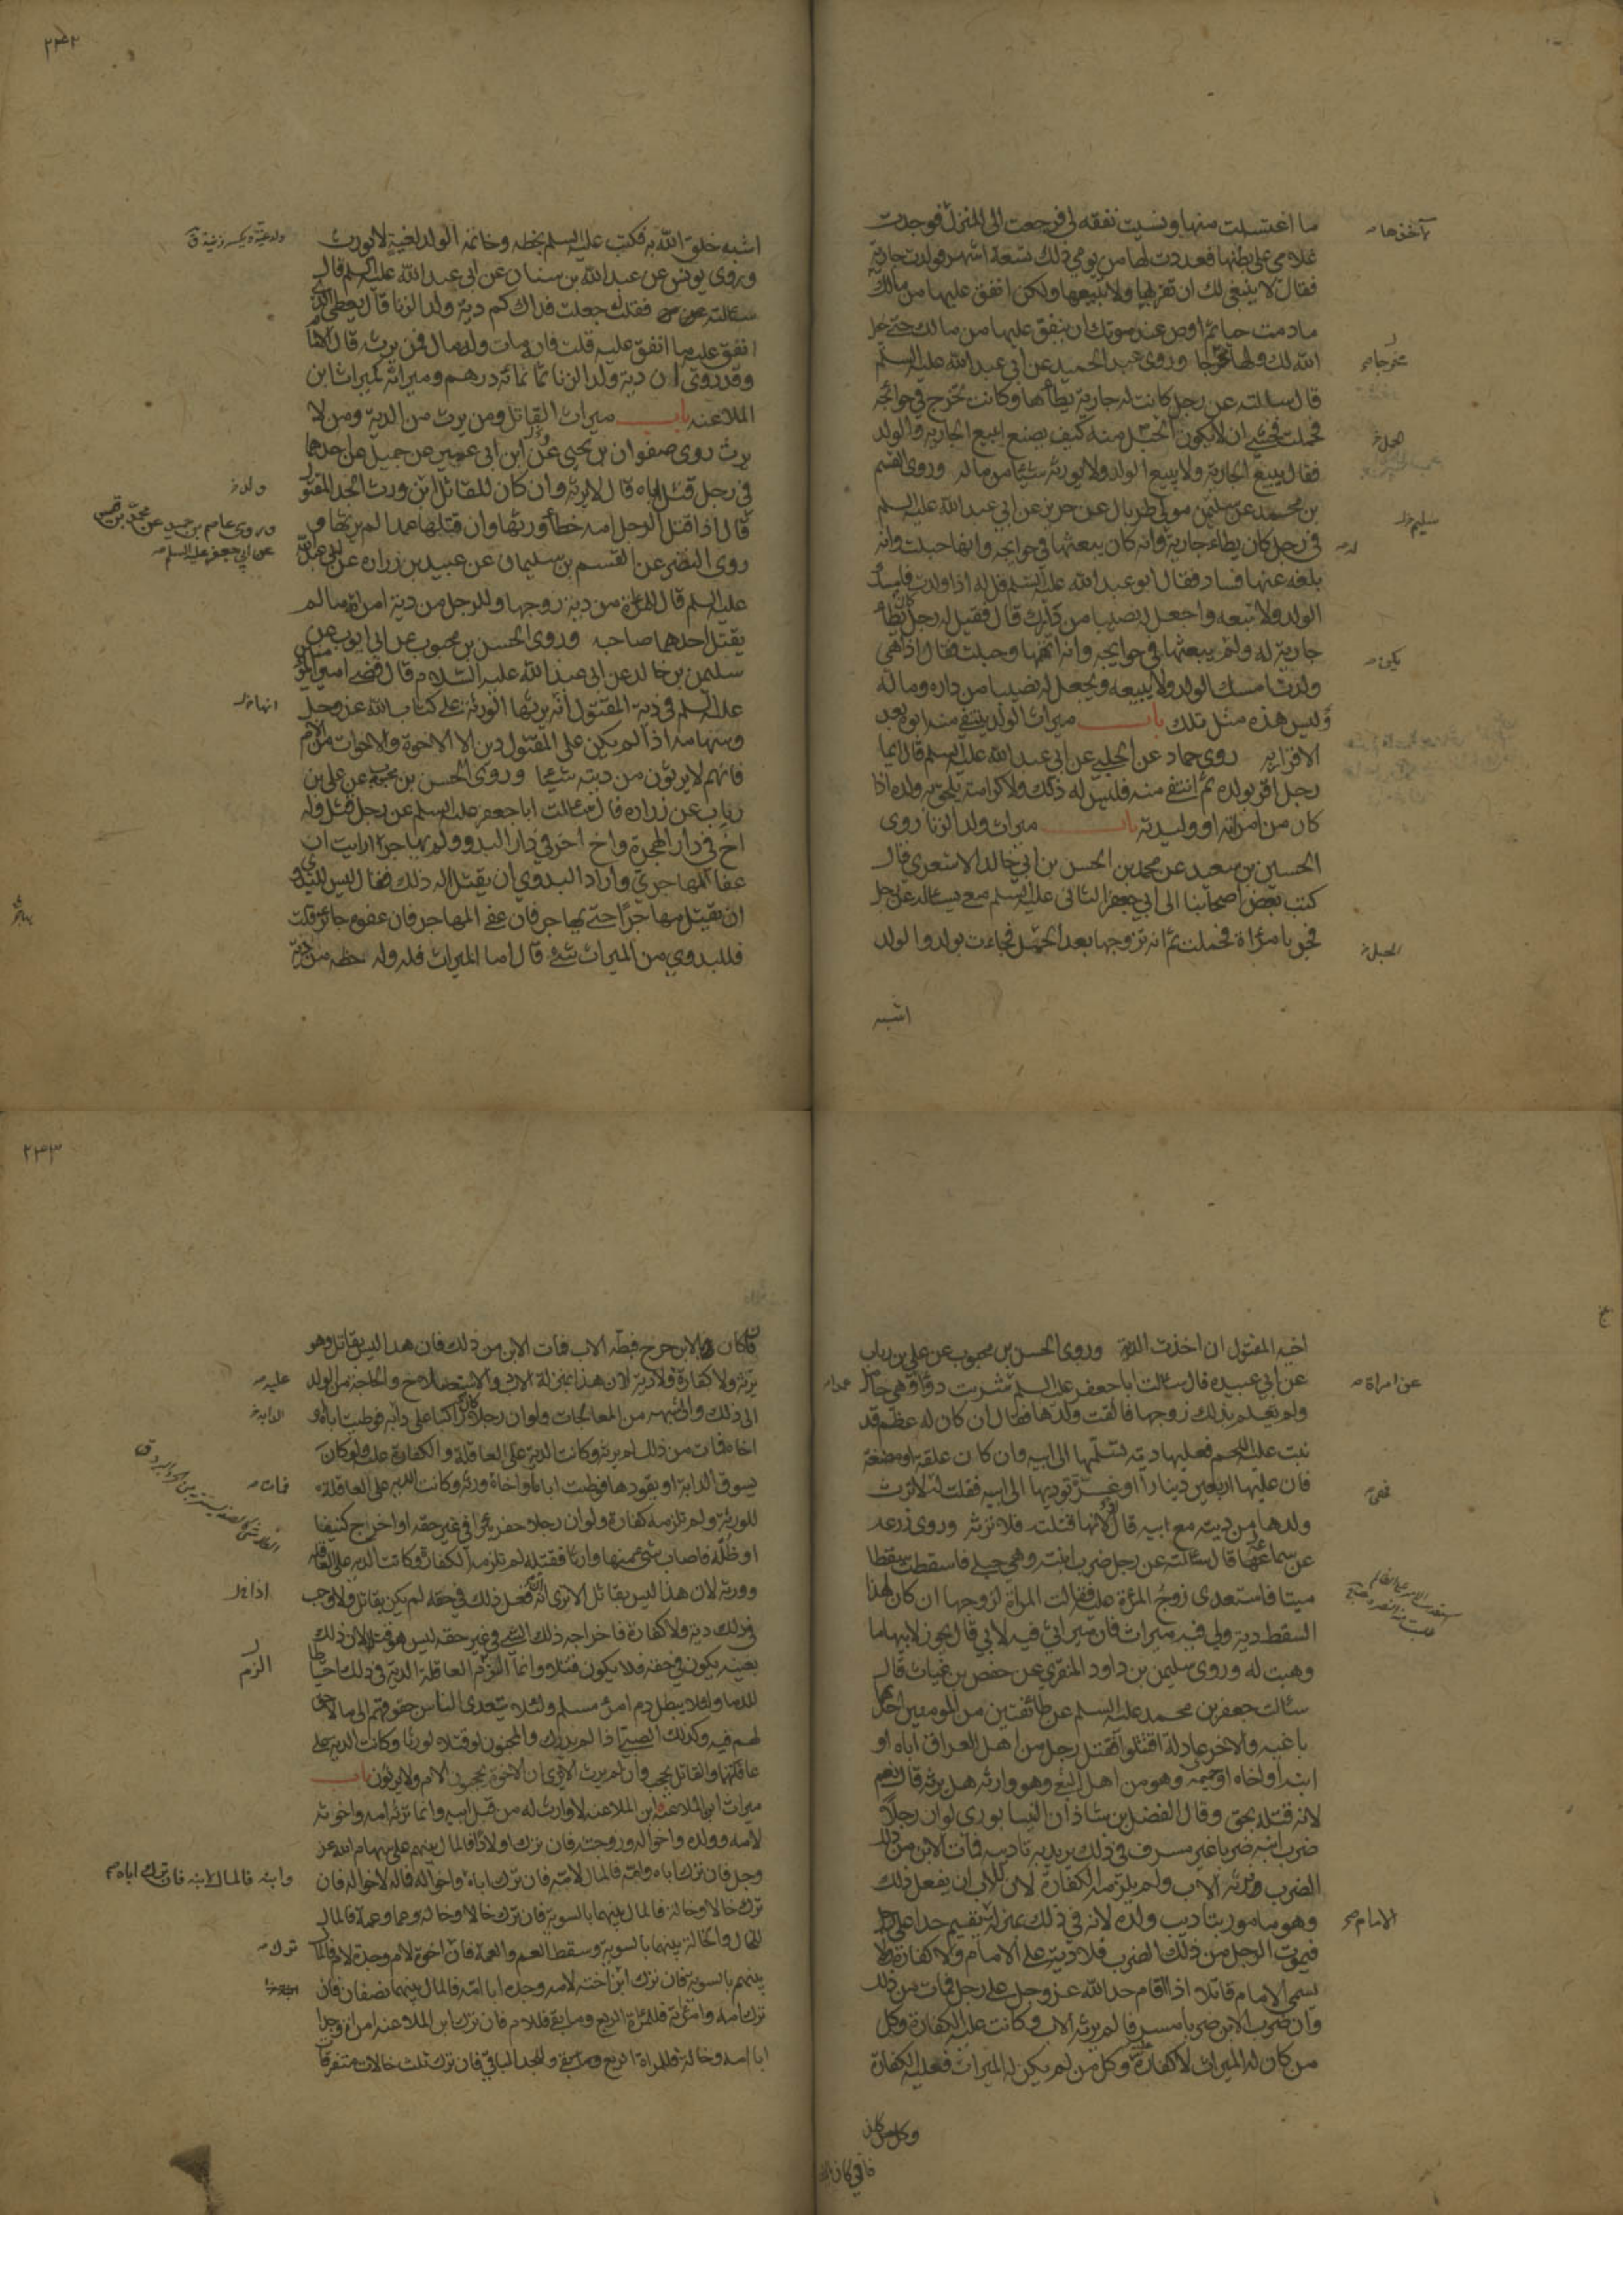 ما اغتسلت منها ونسيت نفقه لي فرجعت الى المنزل فوجدت
غلامي على بطنها فعددت لها من يومي ذلك تسعة اشهر فولدت جارية
فقال لا ينبغي لك ان تقربها ولا تبيعها ولكن انفق عليها من مالك
مادمت حيا ثم اوص عند موتك ان ينفق عليها من مالك حتى يجعل
الله لك ولها مخرجا وروى عبد الحميد عن ابي عبد الله عليه السلم
قال سالته عن رجل كانت له جارية يطأها وكانت تخرج في حوائجه
فحملت فخشي ان لا يكون الحمل منه كيف يصنع ايبيع الجارية والولد
فقال يبيع الجارية ولا يبيع الولد ولا يورثه شيئا من ماله وروى القسم
بن محمد عن سليمن مولى طربال عن حريز عن ابي عبد الله عليه السلم
في رجل كان يطاء جارية وانه كان يبعثها في حوايجه وانها حبلت وانه
بلغه عنها فساد فقال ابو عبد الله عليه السلم قل له اذا ولدت فامسك
الولد ولا تبعه واجعل له نصيبا من دارك قال فقيل له رجل يطأ
جارية له ولم يبعثها في حوايجه وانه اتهمها وحبلت فقال اذا هي
ولدت امسك الولد ولا يبيعه ويجعل له نصيبا من داره وماله
وليس هذه مثل تلك باب ميراث الولد ينتفي منه ابوه بعد
الاقرار به روى حماد عن الحلبي عن ابي عبد الله عليه السلم قال ايما
رجل اقر بولده ثم انتفى منه فليس له ذلك ولا كرامة يلحق به ولده اذا
كان من امرأته او وليدته باب ميراث ولد الزنا روى
الحسين بن سعيد عن محمد بن الحسن بن ابي خالد الاشعري قال
كتب بعض اصحابنا الى ابي جعفر الثاني عليه السلم معي يساله عن رجل
فجر بامرأة فحملت ثم انه تزوجها بعد الحمل فجاءت بولد والولد
اشبه
مخرجا
الحبل
سليم
له
يكن
الحبل
٢٤٢
اشبه خلق الله به فكتب عليه السلم بخطه وخاتمه الولد لغية لا يورث
وروى يونس عن عبد الله بن سنان عن ابي عبد الله عليه السلم قال
سئالته فقلت جعلت فداك كم دية ولد الزنا قال يعطى الذي
انفق عليه ما انفق عليه قلت فانه مات وله مال فمن يرثه قال الامام
وقد روى ان دية ولد الزنا ثمانمائة درهم وميراثه كميراث ابن
الملاعنه باب ميراث القاتل ومن يرث من الدية ومن لا
يرث روى صفوان بن يحيى عن ابن ابي عمير عن جميل عن احدهما
في رجل قتل اباه قال لا يرثه وان كان للقاتل ابن ورث الجد المقتول
قال اذا قتل الرجل امه خطأ ورثها وان قتلها عمدا لم يرثها و
روى النضر عن القسم بن سليمان عن عبيد بن زراره عن ابي عبد الله
عليه السلم قال للمرأة من دية زوجها وللرجل من دية امرأته ما لم
يقتل احدهما صاحبه وروى الحسن بن محبوب عن ابي ايوب عن
سليمن بن خالد عن ابي عبد الله عليه السلام قال قضى امير المؤمنين
عليه السلم في دية المقتول انه يرثها الورثة على كتاب الله عز وجل
وسهامه اذا لم يكن على المقتول دين الا الاخوة والاخوات من الام
فانهم لا يرثون من ديته شيئا وروى الحسن بن محبوب عن علي بن
رياب عن زراره قال سئالت ابا جعفر عليه السلم عن رجل قتل وله
اخ في دار الهجرة واخ اخر في دار البدو ولم يهاجر ارايت ان
عفا المهاجري واراد البدوي ان يقتل اله ذلك فقال ليس للبدوي
ان يقتل مهاجرا حتى يهاجر فان عفى المهاجر فان عفوه جائز قلت
فللبدوي من الميراث شيء قال اما الميراث فله وله حظه من دية
ولد
وروى عاصم بن حميد عن محمد بن قيس
عن ابي جعفر عليه السلم
انها
اخيه المقتول ان اخذت الدية وروى الحسن بن محبوب عن علي بن رياب
عن ابي عبيده قال سئالت ابا جعفر عليه السلم شربت دواء وهي حامل
ولم يعلم بذلك زوجها فالقت ولدها فقال ان كان له عظم قد
نبت عليه اللحم فعليها دية تسلمها الى ابيه وان كان علقة او مضغة
فان عليها اربعين دينارا او غرة توديها الى ابيه فقلت لئلا ترث
ولدها من ديته مع ابيه قال لا لانها قتلته فلا ترثه وروى زرعه
عن سماعه قال سئالته عن رجل ضرب ابنته وهي حبلى فاسقطت سقطا
ميتا فاستعدى زوج المرأة عليه فقالت المرأة لزوجها ان كان لهذا
السقط دية ولي فيه ميراث فان ميراثي فيه لابي قال يجوز لابيها ما
وهبت له وروى سليمن بن داود المنقري عن حفص بن غياث قال
سئالت جعفر بن محمد عليه السلم عن طائفتين من المومنين احدهما
باغيه والاخرى عادلة اقتتلوا فقتل رجل من اهل العراق اباه او
ابنه او اخاه او حميمه وهو من اهل البغي وهو وارثه هل يرثه قال نعم
لانه قتله بحق وقال الفضل بن شاذان النيسابوري لو ان رجلا
ضرب ابنه ضربا غير مسرف في ذلك يريد به تاديبه فمات الابن من ذلك
الضرب ورثه الاب ولم يلزمه الكفارة لان للاب ان يفعل ذلك
وهو مامور بتاديب ولده لانه في ذلك بمنزلة يقيم حدا على رجل
فيموت الرجل من ذلك الضرب فلا دية على الامام ولا كفارة ولا
يسمى الامام قاتلا اذا اقام حد الله عز وجل على رجل فمات من ذلك
وان ضرب الابن ضربا مسرفا لم يرثه الاب وكانت عليه الكفارة وكل
من كان له الميراث لا كفارة عليه وكل من لم يكن له الميراث فعليه الكفارة
عن امراة
عمدا
الامام
٢٤٣
فان كان بالابن جرح فبطه الاب فمات الابن من ذلك فان هذا ليس بقاتل وهو
يرثه ولا كفارة ولا دية لان هذا بمنزلة الادب والاستصلاح والحاجة من الولد
الى ذلك والى شبهه من المعالجات ولو ان رجلا كان راكبا على دابه فوطيت اباه او
اخاه فمات من ذلك لم يرثه وكانت الدية على العاقلة والكفارة عليه ولو كان
يسوق الدابة او يقودها فوطيت اباه او اخاه ورثه وكانت الدية على العاقلة
للورثة ولم تلزمه كفارة ولو ان رجلا حفر بئرا في غير حقه او اخرج كنيفا
او ظلة فاصاب شيء منها وارثا فقتله لم تلزمه الكفارة وكانت الدية على العاقلة
وورثه لان هذا ليس بقاتل الا ترى انه لو فعل ذلك في حقه لم يكن بقاتل ولا وجب
في ذلك دية ولا كفارة فاخراجه ذلك الشيء في غير حقه ليس هو قتلا لان ذلك
بعينه يكون في حقه فلا يكون قتلا وانما الزم العاقلة الدية في ذلك احتياطا
للدماء ولئلا يبطل دم امرئ مسلم ولئلا يتعدى الناس حقوقهم الى ما لا حق
لهم فيه وكذلك الصبي اذا لم يدرك والمجنون لو قتلا لورثا وكانت الدية على
عاقلتهما والقاتل يحجب وان لم يرث الا ترى ان الاخوة يحجبون الام ولا يرثون باب
ميراث ابن الملاعنه ابن الملاعنه لا وارث له من قبل ابيه وانما ترثه امه واخوته
لامه وولده واخواله وزوجته فان ترك اولادا فالمال بينهم على سهام الله عز
وجل فان ترك اباه وامه فالمال لامه فان ترك اباه واخواله فماله لاخواله فان
ترك خالا وخالة فالمال بينهما بالسوية فان ترك خالا وخالة وعما وعمة فالمال
للخال والخالة بينهما بالسوية وسقط العم والعمة فان اخوة لام وجدة لام فالمال
بينهم بالسوية فان ترك ابن اخته لامه وجده ابا امه فالمال بينهما نصفان فان
ترك امه وامرأته فللمرأة الربع وما بقى فللام فان ترك ابن الملاعنه امرأة وجدا
ابا امه وخالة فللمراة الربع وما بقى وللجد الباقي فان ترك ثلث خالات متفرقات
عليه
الدابة
فمات
اذا
الزم
وابنه فالمال لابنه فان ترك اباه
ترك